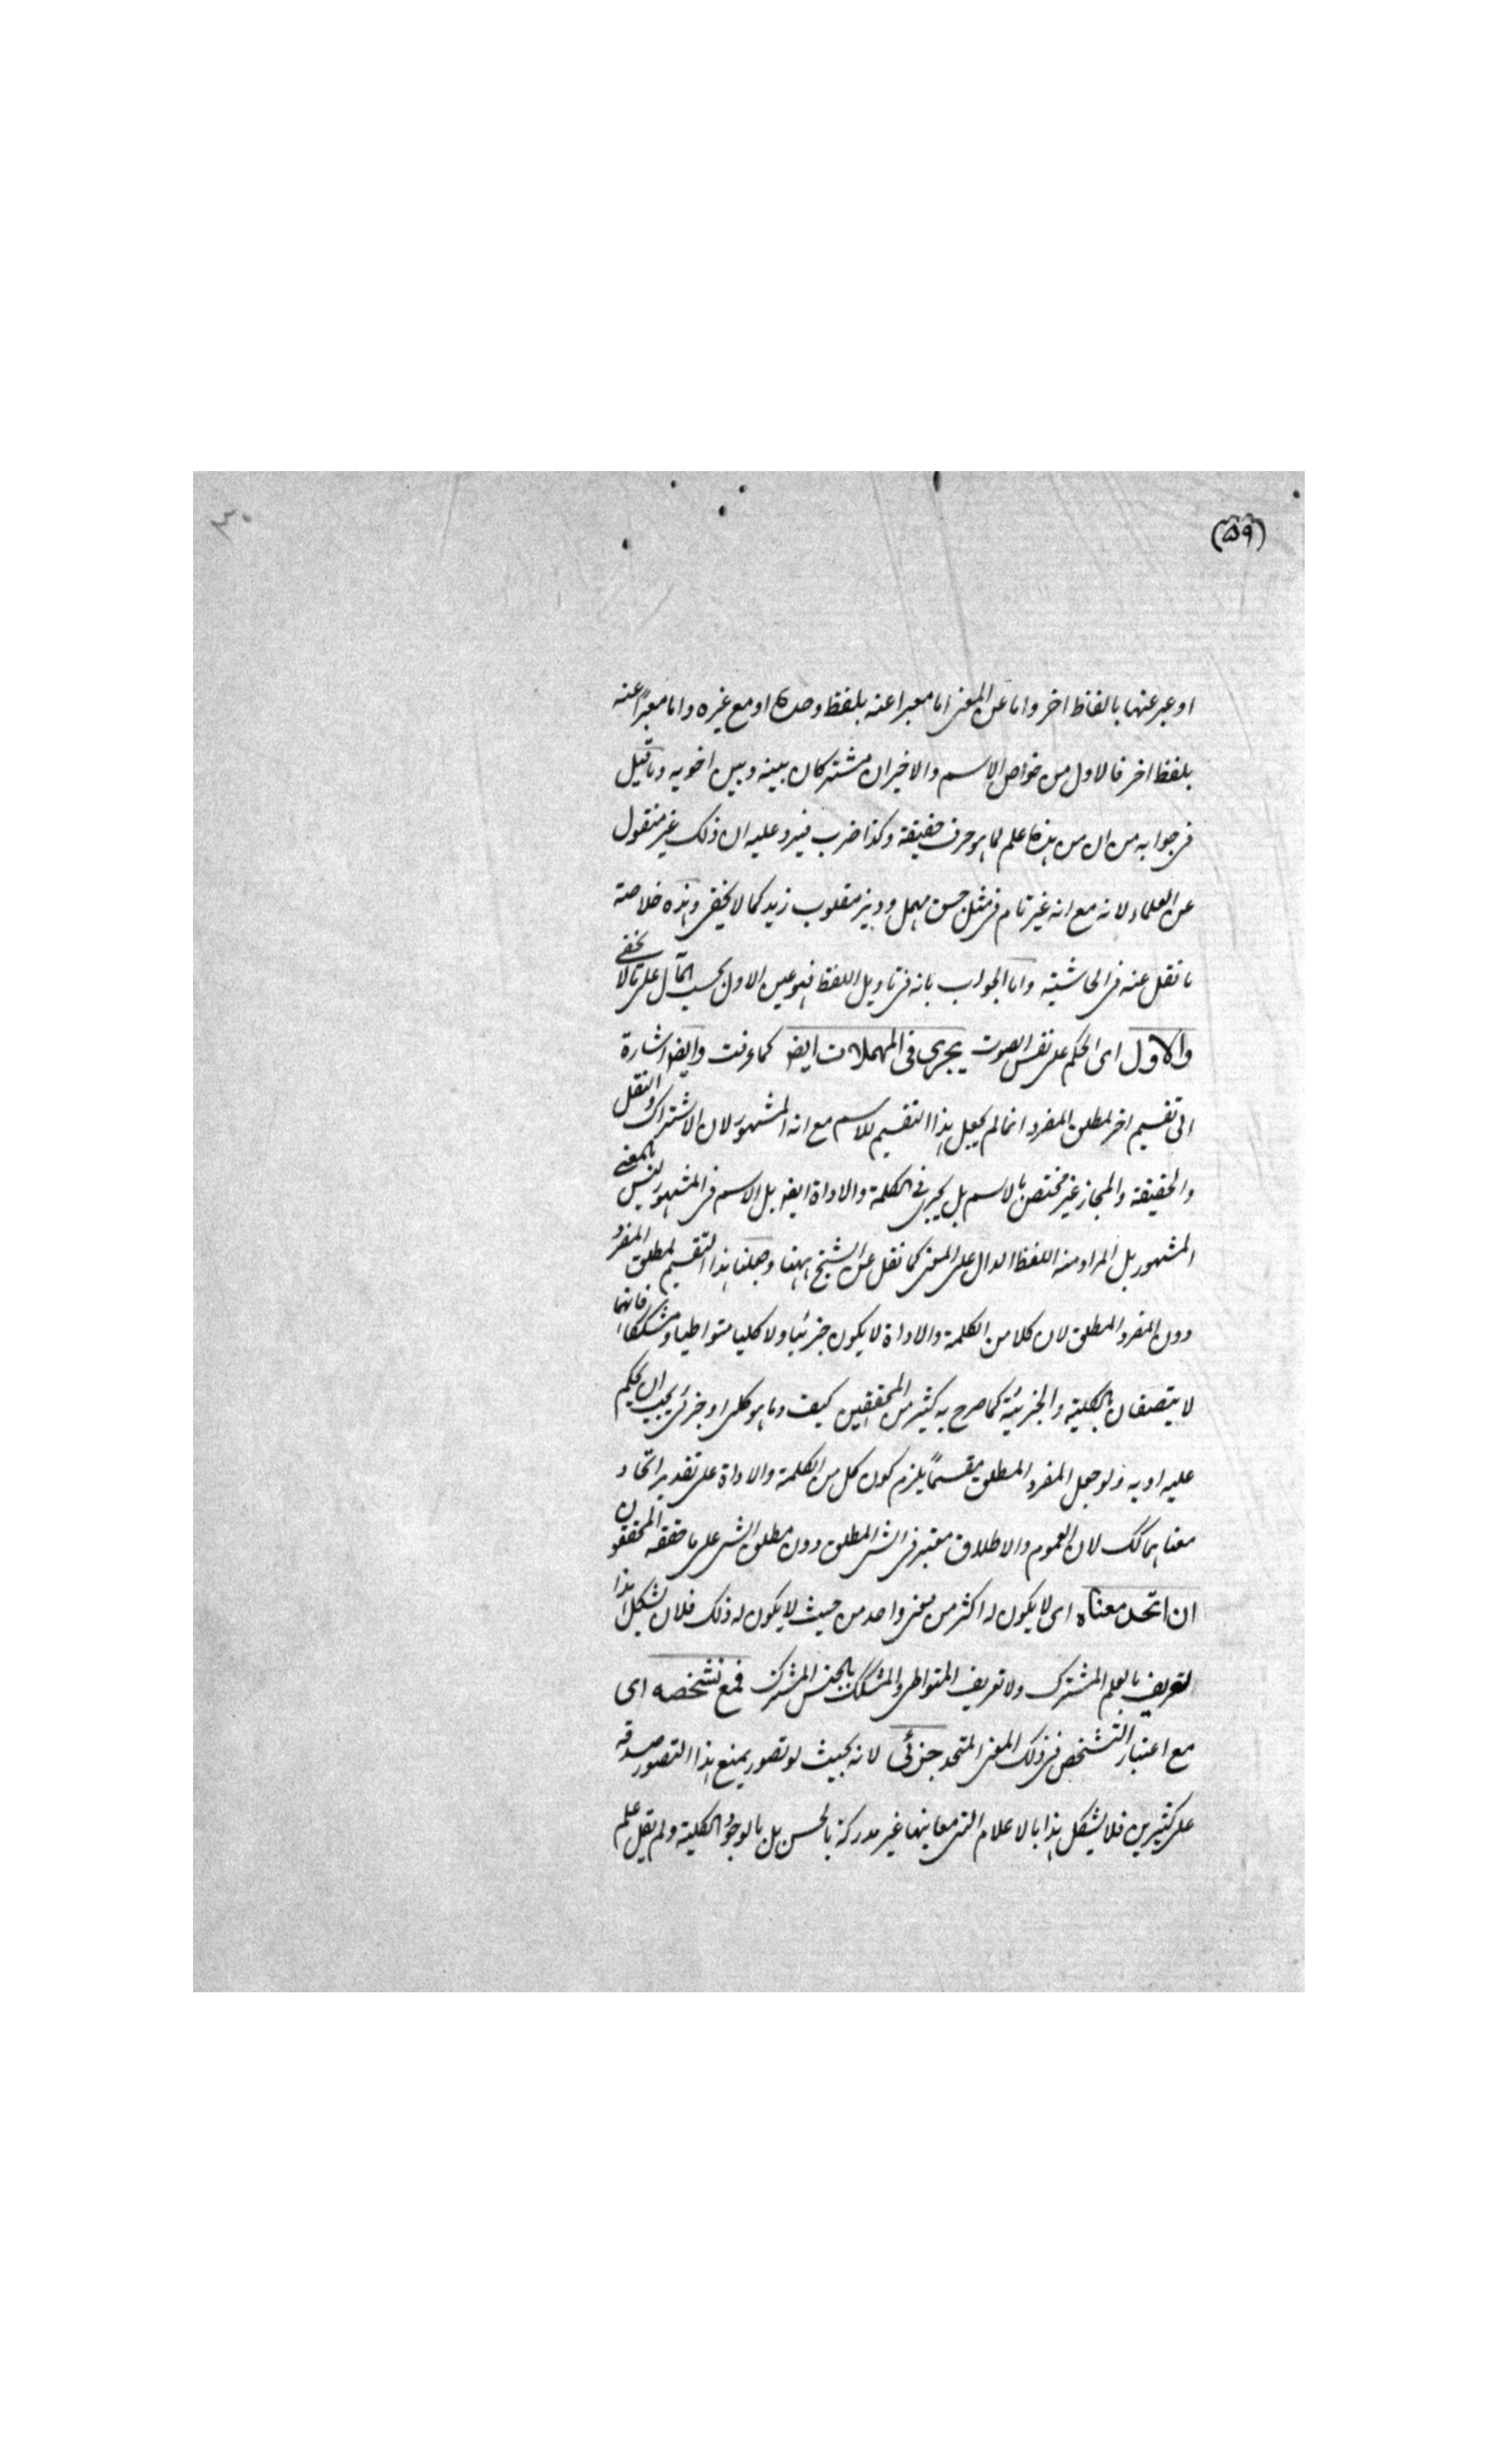 (٥٩)
٣٠
او عبر عنها بالفاظ اخر واما عن المعنى اما معبرا عنه بلفظ وحده او مع غيره واما معبرًا عنه
بلفظ اخر فالاول من خواص الاسم والاخيران مشتركان بينه وبين اخويه وما قيل
فى جوابه من ان من هذه علم لما هو حرف حقيقة وكذا ضرب فيرد عليه ان ذلك غير منقول
عن العلماء لانه مع انه غير تام فى مثل جسق مهمل وديز مقلوب زيد كما لا يخفى وهذه خلاصة
ما نقل عنه فى الحاشية واما الجواب بانه فى تاويل اللفظ فهو عين الاول بحسب المآل على ما لا يخفى
والاول اى الحكم على نفس الصوت يجرى فى المهملات ايضا كما عرفت وايضا اشارة
الى تقسيم اخر لمطلق المفرد انما لم يجعل هذا التقسيم للاسم مع انه المشهور لان الاشتراك والنقل
والحقيقة والمجاز غير مختص بالاسم بل يجرى فى الكلمة والاداة ايضا بل الاسم فى المشهور ليس بالمعنى
المشهور بل المراد منه اللفظ الدال على المعنى كما نقل عن الشيخ ههنا وجعلنا هذا التقسيم لمطلق المفرد
دون المفرد المطلق لان كلا من الكلمة والاداة لا يكون جزئيا ولا كليا متواطيا ومشككا فانهما
لا يتصفان بالكلية والجزئية كما صرح به كثير من المحققين كيف وما هو كلى او جزئى يجب ان يحكم
عليه او به ولو جعل المفرد المطلق مقسمًا يلزم كون كل من الكلمة والاداة على تقدير اتحاد
معناهما كك لان العموم والاطلاق معتبر فى الشى المطلق دون مطلق الشى على ما حققه المحققون
ان اتحد معناه اى لا يكون له اكثر من معنى واحد من حيث لا يكون له ذلك فلا يشكل هذا
التعريف بالعلم المشترك ولا تعريف المتواطى والمشكك بالجنس المشترك فمع تشخصه اى
مع اعتبار التشخص فى ذلك المعنى المتحد جزئى لانه بحيث لو تصور يمنع هذا التصور صدقه
على كثيرين فلا يشكل هذا بالاعلام التى معانيها غير مدركة بالحس بل بالوجوه الكلية ولم يقل علم